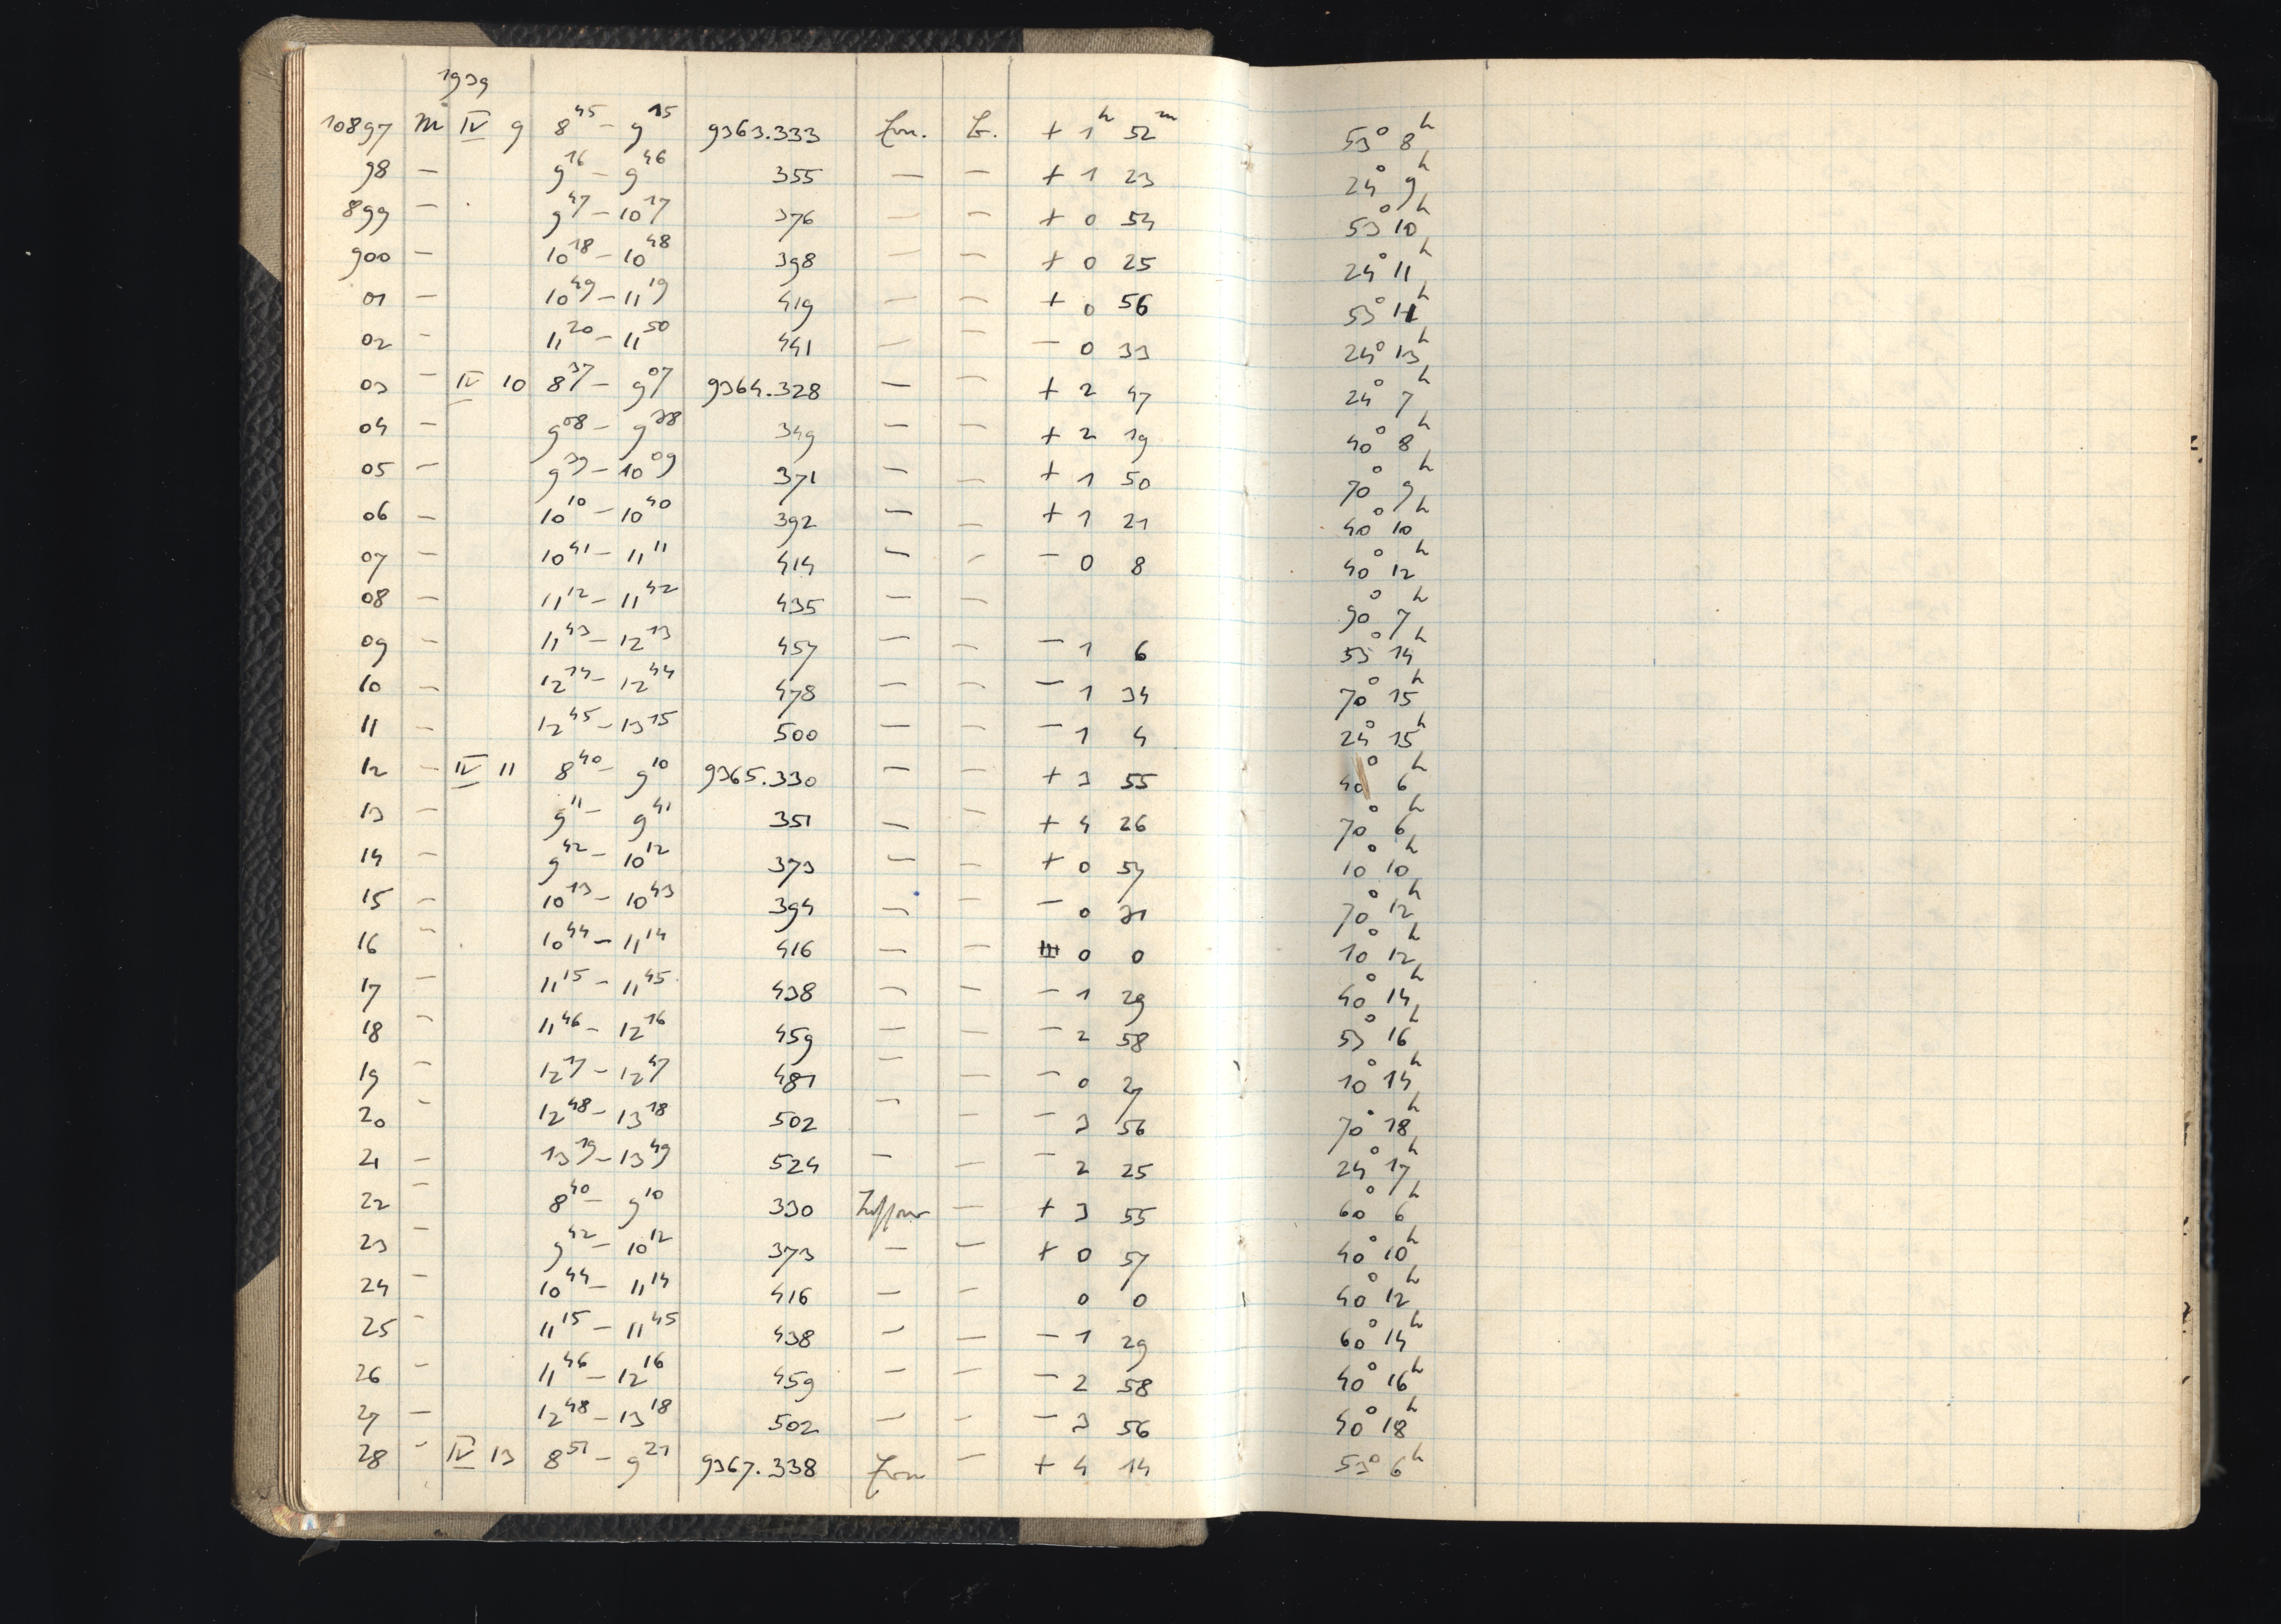 1939
10897 M IV 9 8 45 – 9 15 9363.333 + 1 h 52 m 53° 8 h
98 – 9 16 – 9 46 355 — – + 1 23 24° 9 h
899 – 9 47 – 10 17 376 — – + 0 54 53° 10 h
900 – 10 18 – 10 48 398 — – + 0 25 24° 11 h
01 – 10 49 – 11 19 419 — – + 0 56 53° h
02 – 11 20 – 11 50 441 — – – 0 33 24° 13 h
03 – IV 10 8 37 – 9 07 9364.328 — – + 2 47 24° 7 h
04 – 9 08 – 9 38 349 — – + 2 19 40° 8 h
05 – 9 39 – 10 09 371 — – + 1 50 70° 9 h
06 – 10 10 – 10 40 392 — – + 1 21 40° 10 h
07 – 10 41 – 11 11 414 — – – 0 8 40° 12 h
08 – 11 12 – 11 42 435 — – 90° 7 h
09 – 11 43 – 12 13 457 — – – 1 6 53° 14 h
10 – 12 14 – 12 44 478 — – – 1 34 70° 15 h
11 – 12 45 – 13 15 500 — – – 1 4 24° 15 h
12 – IV 11 8 40 – 9 10 9365.330 — – + 3 55 40° 6 h
13 – 9 11 – 9 41 351 — – + 4 26 70° 6 h
14 – 9 42 – 10 12 373 — – + 0 57 10° 10 h
15 – 10 13 – 10 43 394 — – – 0 31 70° 12 h
16 – 10 44 – 11 14 416 — – 0 0 10° 12 h
17 – 11 15 – 11 45 438 — – – 1 29 40° 14 h
18 – 11 46 – 12 16 459 — – – 2 58 53° 16 h
19 – 12 17 – 12 47 481 — – – 0 27 10° 14 h
20 – 12 48 – 13 18 502 — – – 3 56 70° 18 h
21 – 13 19 – 13 49 524 — – – 2 25 24° 17 h
22 – 8 40 – 9 10 330 – + 3 55 60° 6 h
23 – 9 42 – 10 12 373 — – + 0 57 40° 10 h
24 – 10 44 – 11 14 416 — – 0 0 40° 12 h
25 – 11 15 – 11 45 438 — – – 1 29 60° 14 h
26 – 11 46 – 12 16 459 — – – 2 58 40° 16 h
27 – 12 48 – 13 18 502 — – – 3 56 40° 18 h
28 – IV 13 8 51 – 9 21 9367.338 – + 4 14 53° 6 h